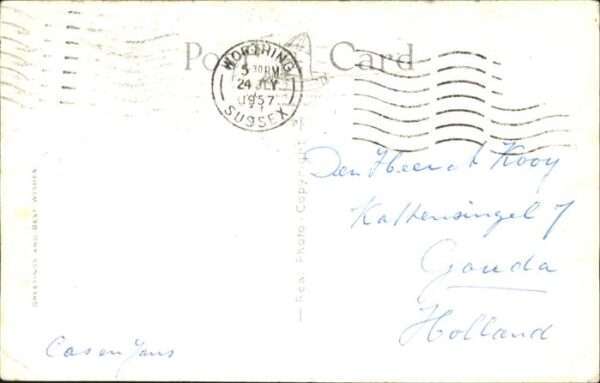 Post Card
WORTHING
5 30 PM
24 JLY
1957
SUSSEX
GREETINGS AND BEST WISHES
Real Photo Copyright
Den Heer A Kooy
Kattensingel 7
Gouda
Holland
Cas en Jans